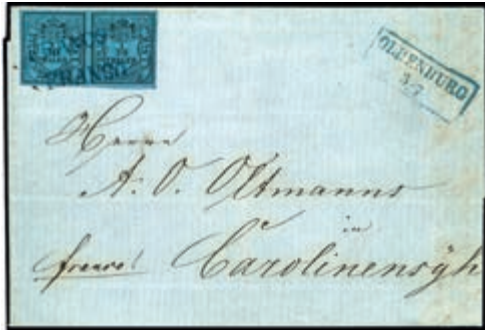 OLDENBURG
3/7
Herrn
A. O. Oltmanns
in
franco!
Carolinensyh